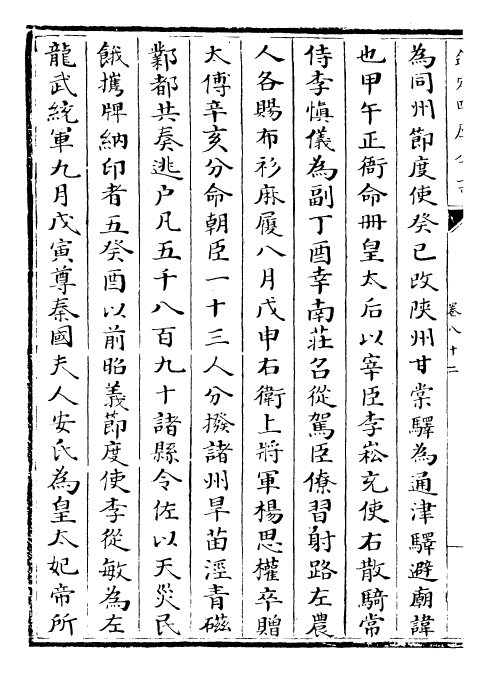 欽定四庫全書
卷八十二
為同州節度使癸巳改陜州甘棠驛為通津驛避廟諱
也甲午正衙命冊皇太后以宰臣李崧充使右散騎常
侍李慎儀為副丁酉幸南莊召從駕臣僚習射路左農
人各賜布衫麻屨八月戊申右衛上將軍楊思權卒贈
太傅辛亥分命朝臣一十三人分撥諸州旱苗涇青磁
鄴都共奏逃户凡五千八百九十諸縣令佐以天災民
餓攜牌納印者五癸酉以前昭義節度使李從敏為左
龍武統軍九月戊寅尊秦國夫人安氏為皇太妃帝所